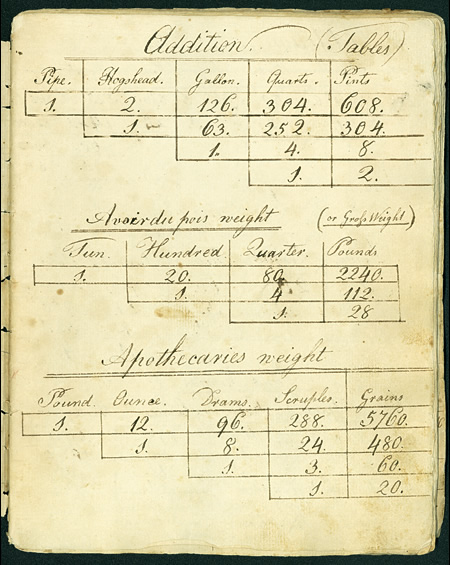 Addition. (Tables)
Pipe. Hogshead. Gallon. Quarts. Pints
1. 2. 126. 304. 608.
1. 63. 252. 304.
1. 4. 8.
1. 2.
Avoirdu pois weight (or Gross Weight)
Tun. Hundred Quarter. Pounds
1. 20. 80. 2240.
1. 4 112.
1. 28
Apothecaries weight
Pound. Ounce. Drams. Scruples. Grains
1. 12. 96. 288. 5760.
1. 8. 24. 480
1. 3. 60.
1. 20.